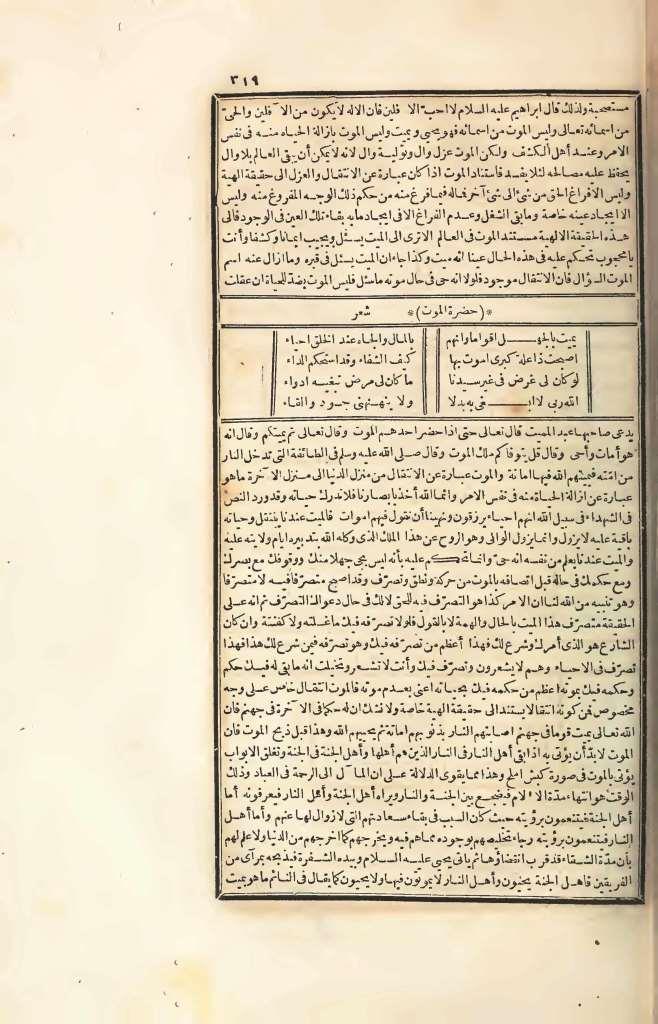 ٣١٩
مستصحبة ولذلك قال ابراهيم عليه السلام لا احب الا فلين فان الاله لا يكون من الا فلين والحى
من اسمائه تعالى وليس الموت من اسمائه فهو يحيى ويميت وليس الموت بازالة الحياه منه فى نفس
الامر وعند أهل الكشف ولكن الموت عزل وال وتولية وال لانه لا يمكن أن يبقى العالم بلا وال
يحفظ عليه مصالحه لئلا يفسد فاستناد الموت اذا كان عبارة عن الانتقال والعزل الى حقيقة الهية
وليس الا فراغ الحق من شئ الى شئ آخر فماله فيما فرغ منه من حكم ذلك الوجه المفروغ منه وليس
الا ايجاد عينه خاصة وما بقى الشغل وعدم الفراغ الا فى ايجاد ما به بقاء تلك العين فى الوجود فالى
هذه الحقيقة الالهية مستند الموت فى العالم الا ترى الى الميت يسئل ويجيب ايمانا وكشفا وأنت
يا محجوب تحكم عليه فى هذه الحال عينا انه ميت وكذا جاء ان الميت يسئل فى قبره وما ازال عنه اسم
الموت السؤال فان الانتقال موجود فلولا انه حى فى حال موته ما سئل فليس الموت بضد للحياة ان عقلت
*(حضرة الموت)* شعر
يميت بالجهل اقواما وانهم بالمال والجاه عند الخلق احياء
اصبحت ذا علة كبرى اموت بها كيف الشفاء وقد استحكم الداء
لو كان لى غرض فى غير سيدنا ما كان لى مرض تبغيه ادواء
الله ربى لا ابغى به بدلا ولا ينهنهنى جود والقاء
يدعى صاحبها عبد المميت قال تعالى حتى اذا حضر احدهم الموت وقال تعالى ثم يميتكم وقال انه
هو أمات وأحيى وقال قل يتوفاكم ملك الموت وقال صلى الله عليه وسلم فى الطائفة التى تدخل النار
من امته فيميتهم الله فيها اماتة والموت عبارة عن الانتقال من منزل الدنيا الى منزل الا خرة ما هو
عبارة عن ازالة الحياة منه فى نفس الامر وانما الله أخذ بابصارنا فلا ندرك حياته وقد ورد النص
فى الشهداء فى سبيل الله انهم احياء يرزقون ونهينا أن نقول فيهم اموات فالميت عندنا ينتقل وحياته
باقية عليه لا يزول وانما يزول الوالى وهو الروح عن هذا الملك الذى وكله الله بتدبيره ايام ولايته عليه
والميت عندنا يعلم من نفسه انه حى وانما تحكم عليه بأنه ليس بحى جهلا منك ووقوفك مع بصرك
ومع حكمك فى حاله قبل اتصافه بالموت من حركة ونطق وتصرف وقد اصبح متصرفا فيه لا متصرفا
وهو تنبيه من الله لنا ان الامر كذا هو التصرف فيه للحق لا لك فى حال دعواك التصرف ثم انه على
الحقيقة متصرف هذا الميت بالحال والهمة لا بالقول فلولا تصرفه فيك ما غسلته ولا كفنته وان كان
الشارع هو الذى أمرك وشرع لك فهذا أعظم من تصرفه فيك وهو تصرفه فيمن شرع لك هذا فهذا
تصرف فى الاحياء وهم لا يشعرون وتصرف فيك وأنت لا تشعر وتخيلت انه ما بقى له فيك حكم
وحكمه فيك بموته اعظم من حكمه فيك بحياته اعنى بعدم موته فالموت انتقال خاص على وجه
مخصوص فمن كونه انتقالا يستند الى حقيقة الهية خاصة ولا نشك ان له حكما فى الا خرة فى جهنم فان
الله تعالى يميت قوما فى جهنم اصابتهم النار بذنوبهم اماتة ثم يحييهم الله وهذا قبل ذبح الموت فان
الموت لا بد أن يؤتى به اذا بقى أهل النار فى النار الذين هم أهلها وأهل الجنة فى الجنة وتغلق الابواب
يؤتى بالموت فى صورة كبش املح وهذا مما يقوى الدلالة على ان المآل الى الرحمة فى العباد وذلك
الوقت هو انتهاء مدة الا لام فيضجع بين الجنة والنار ويراه أهل الجنة وأهل النار فيعرفونه أما
أهل الجنة فيتنعمون برؤيته حيث كان السبب فى بقاء سعادتهم التى لا زوال لها عنهم وأما أهل
النار فيتنعمون برؤيته رجاء تخليصهم بوجوده مما هم فيه ويخرجهم كما اخرجهم من الدنيا ولا علم لهم
بأن مدة الشقاء قد قرب انقضاؤها ثم ياتى يحيى عليه السلام وبيده الشفرة فيذبحه بمرآى من
الفريقين فاهل الجنة يحيون وأهل النار لا يموتون فيها ولا يحيون كما يقال فى النائم ما هو بميت